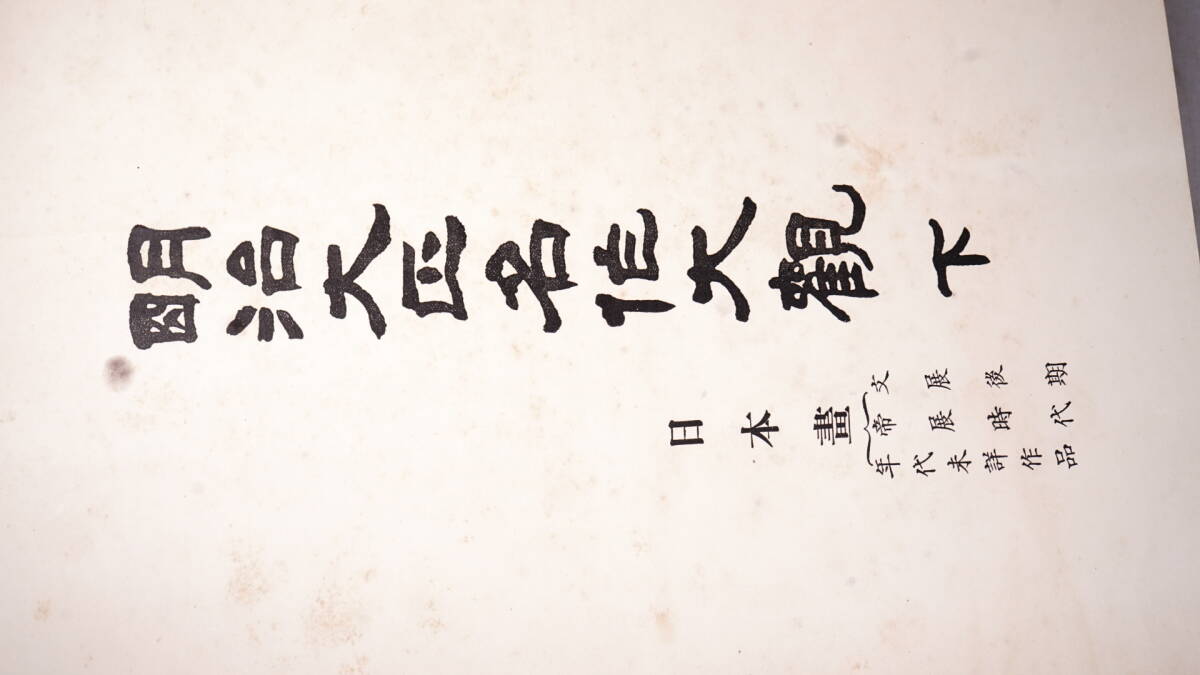 明治大正名作大觀 下
日本畫
文展後期
帝展時代
年代未詳作品